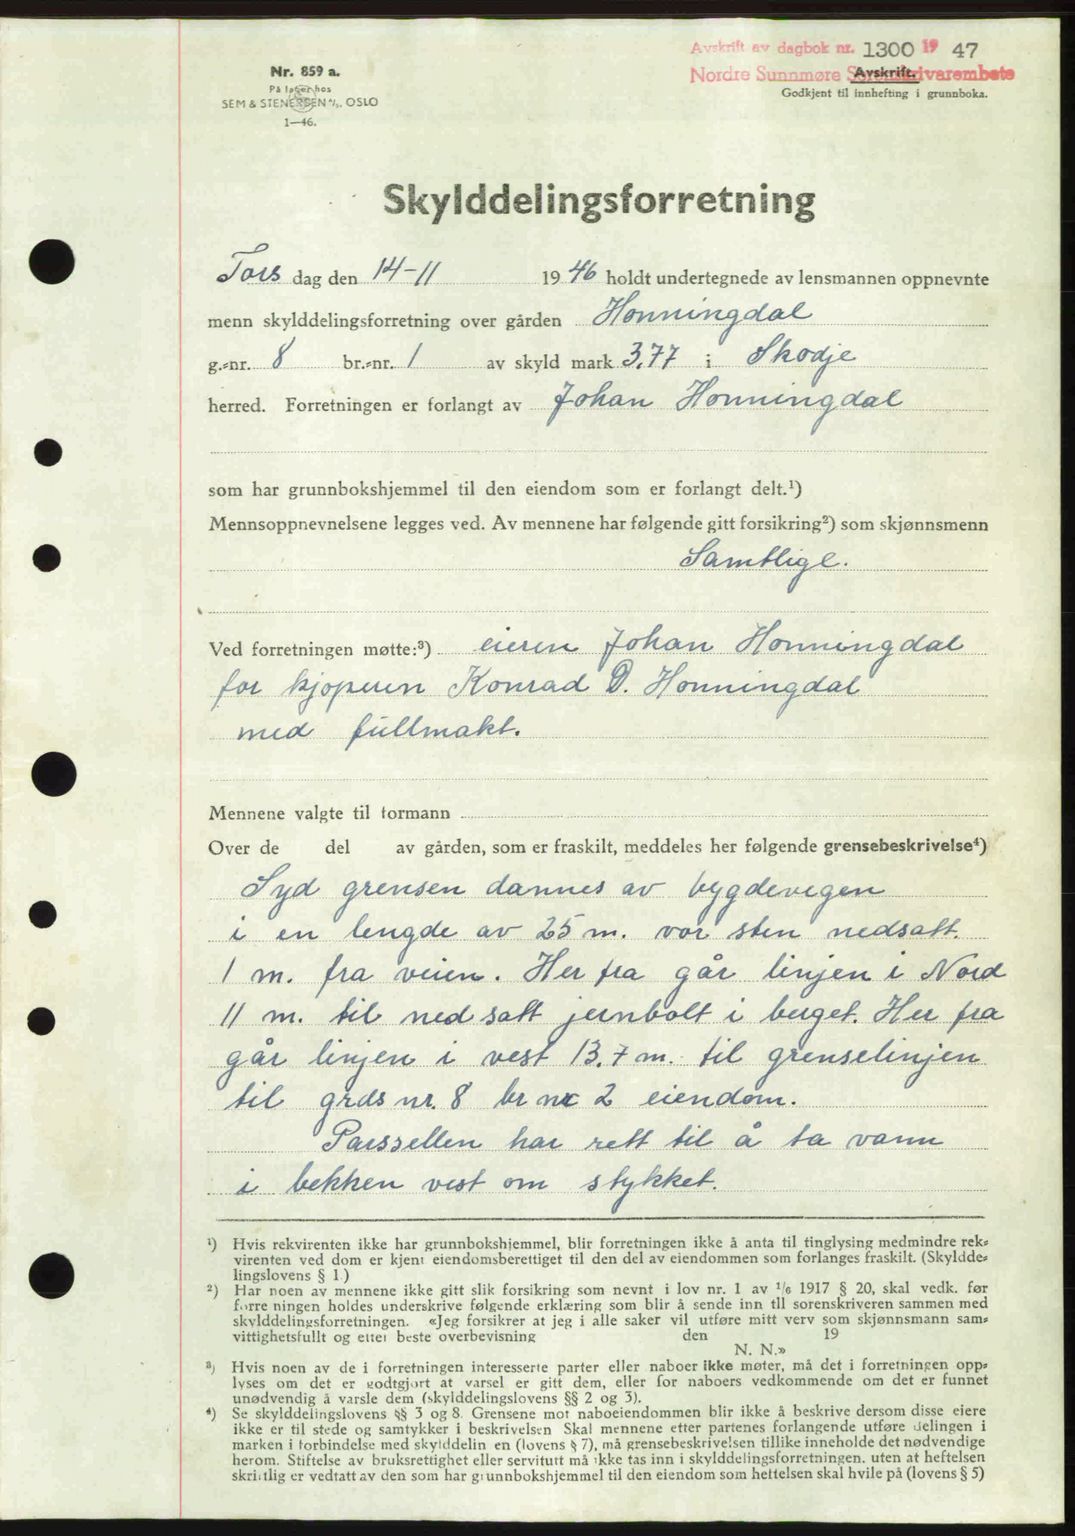 Avskrift av dagbok nr. 1300 19 47
Nordre Sunnmøre Sorenskriverembete
Avskrift.
Godkjent til innhefting i grunnboka.
Nr. 859 a.
På lager hos
SEM & STENERSEN A/S. OSLO
1—46.
Skylddelingsforretning
Tors dag den 14-11 19 46 holdt undertegnede av lensmannen oppnevnte
menn skylddelingsforretning over gården Honningdal
g.-nr. 8 br.-nr. 1 av skyld mark 3,77 i Skodje
herred. Forretningen er forlangt av Johan Honningdal
som har grunnbokshjemmel til den eiendom som er forlangt delt.¹)
Mennsoppnevnelsene legges ved. Av mennene har følgende gitt forsikring²) som skjønnsmenn
Samtlige.
Ved forretningen møtte:³) eieren Johan Honningdal
for kjøperen Konrad D. Honningdal
med fullmakt.
Mennene valgte til formann
Over de del av gården, som er fraskilt, meddeles her følgende grensebeskrivelse⁴)
Syd grensen dannes av bygdevegen
i en lengde av 25 m. vor sten nedsatt.
1 m. fra veien. Her fra går linjen i Nord
11 m. til ned satt jernbolt i berget. Her fra
går linjen i vest 13,7 m. til grenselinjen
til grds nr. 8 br nr 2 eiendom.
Parssellen har rett til å ta vann
i bekken vest om stykket.
¹) Hvis rekvirenten ikke har grunnbokshjemmel, blir forretningen ikke å anta til tinglysing medmindre rek-
virenten ved dom er kjent eiendomsberettiget til den del av eiendommen som forlanges fraskilt. (Skyldde-
lingslovens § 1.)
²) Har noen av mennene ikke gitt slik forsikring som nevnt i lov nr. 1 av 1/6 1917 § 20, skal vedk. før
forretningen holdes underskrive følgende erklæring som blir å sende inn til sorenskriveren sammen med
skylddelingsforretningen. «Jeg forsikrer at jeg i alle saker vil utføre mitt verv som skjønnsmann sam-
vittighetsfullt og etter beste overbevisning den 19
N. N.»
³) Hvis noen av de i forretningen interesserte parter eller naboer ikke møter, må det i forretningen opp-
lyses om det er godtgjort at varsel er gitt dem, eller for naboers vedkommende om det er funnet
unødvendig å varsle dem (skylddelingslovens §§ 2 og 3).
⁴) Se skylddelingslovens §§ 3 og 8. Grensene mot naboeiendommen blir ikke å beskrive dersom disse eiere
ikke er til stede og samtykker i beskrivelsen Skal mennene etter partenes forlangende utføre delingen i
marken i forbindelse med skylddelingen (lovens § 7), må grensebeskrivelsen tillike inneholde det nødvendige
herom. Stiftelse av bruksrettighet eller servitutt må ikke tas inn i skylddelingsforretningen. uten at heftelsen
skriftlig er vedtatt av den som har grunnbokshjemmel til den eiendom som heftelsen skal hvile på (lovens § 5)